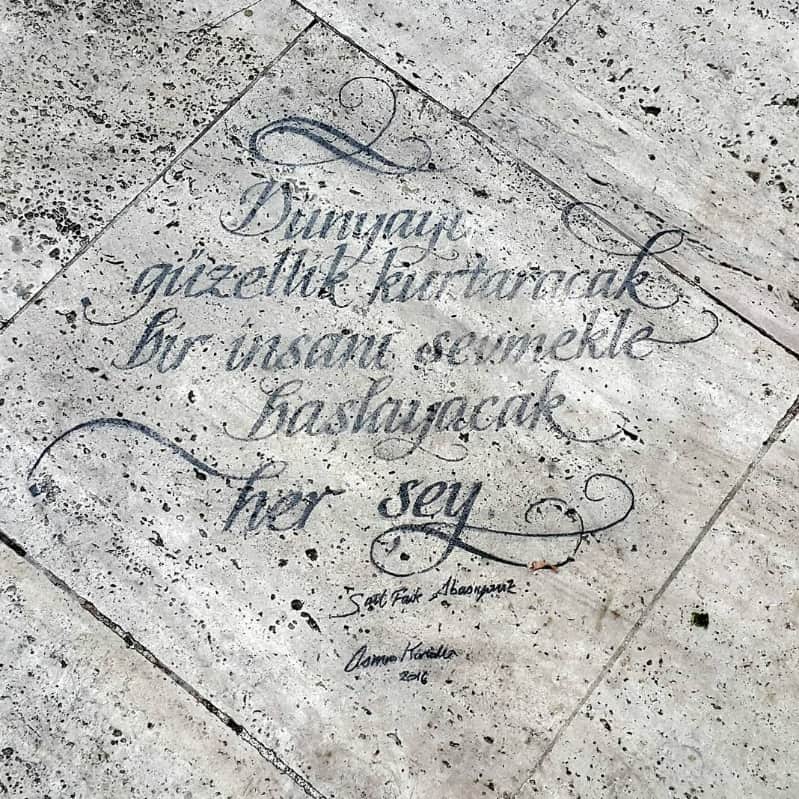 Dünyayı
güzellik kurtaracak
bir insanı sevmekle
başlayacak
her sey
Sait Faik Abasıyanık
2016